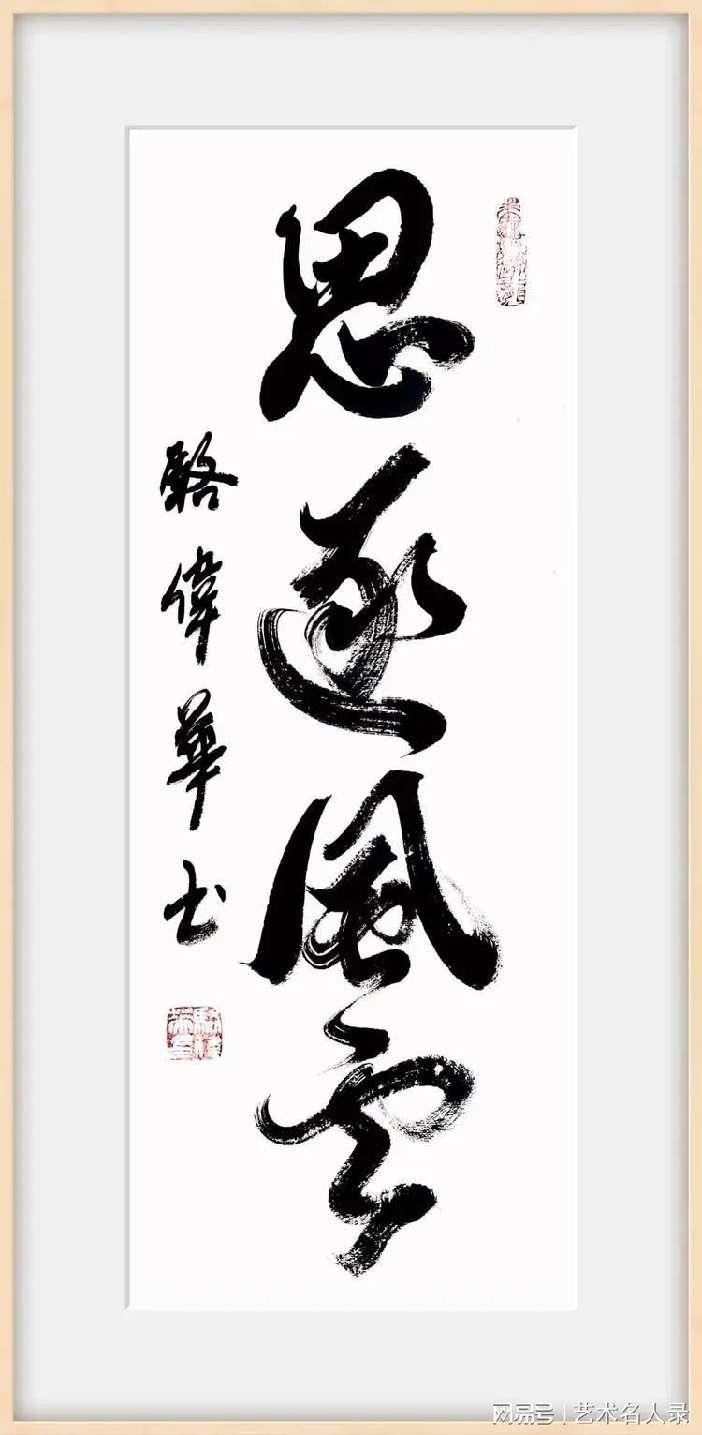 思逐風雲
駱偉華书
网易号 | 艺术名人录